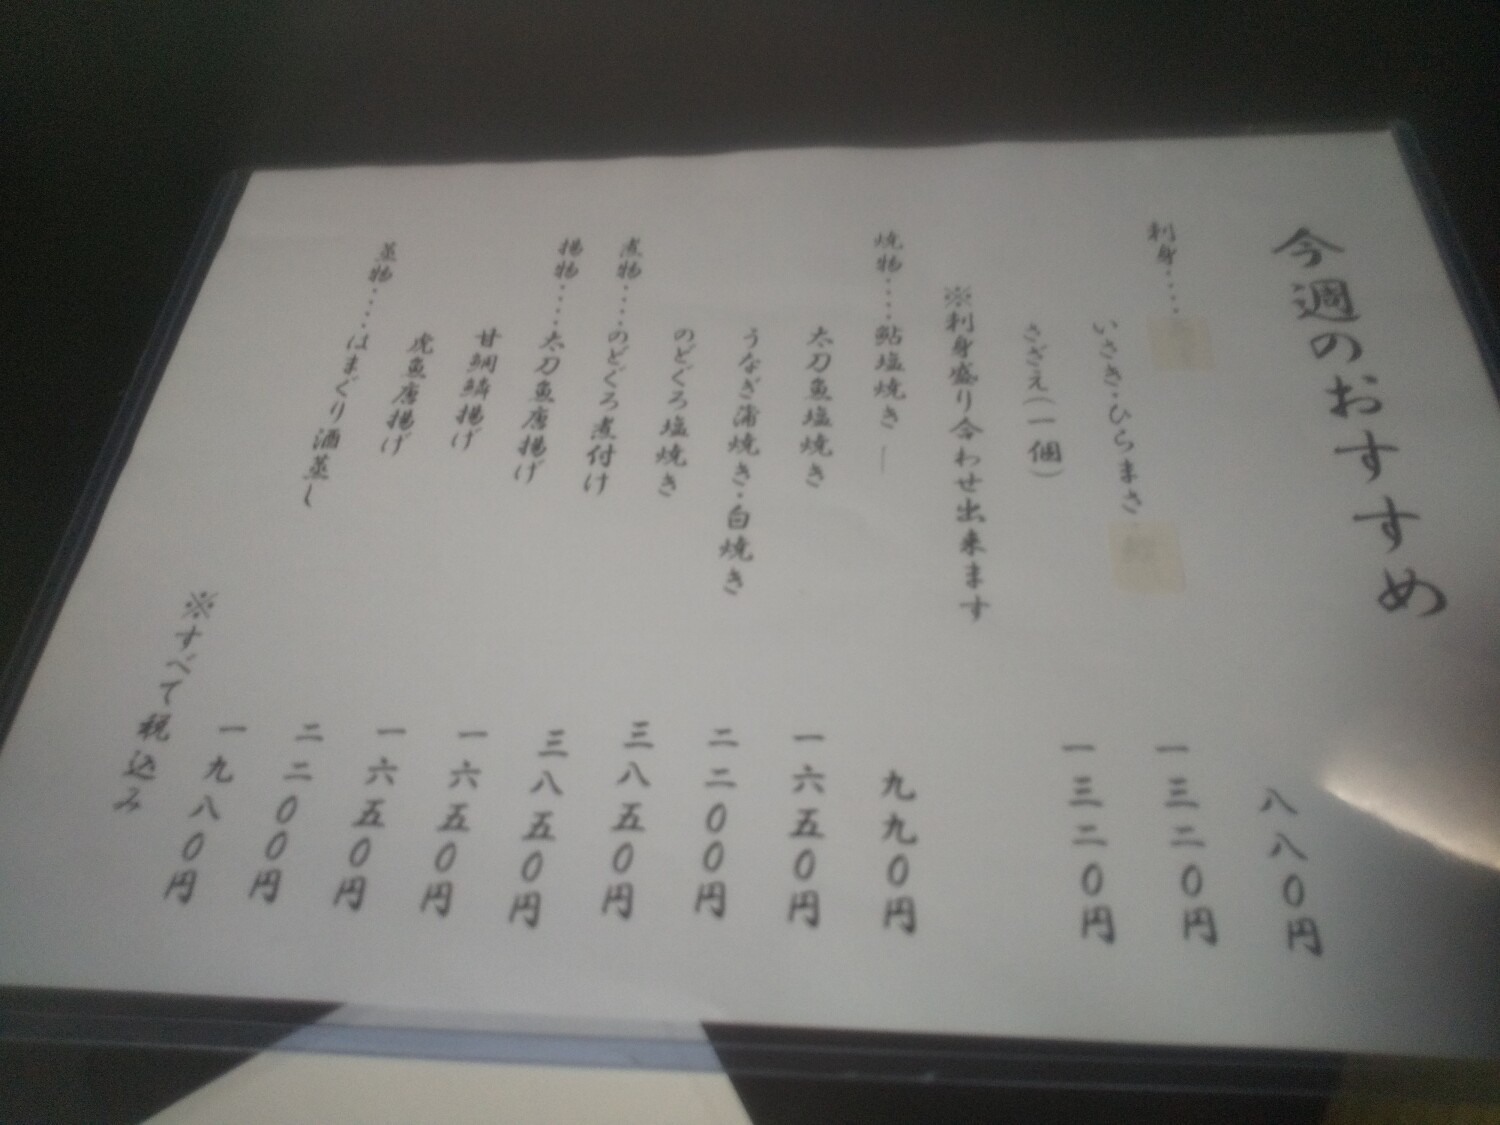 今週のおすすめ
刺身・・・・
八八〇円
いさき・ひらまさ
一三二〇円
さざえ(一個)
一三二〇円
※刺身盛り合わせ出来ます
焼物・・・・鮎塩焼き
九九〇円
太刀魚塩焼き
一六五〇円
うなぎ蒲焼き・白焼き
二二〇〇円
のどぐろ塩焼き
三八五〇円
煮物・・・・のどぐろ煮付け
三八五〇円
揚物・・・・太刀魚唐揚げ
一六五〇円
甘鯛鱗揚げ
一六五〇円
虎魚唐揚げ
二二〇〇円
蒸物・・・・はまぐり酒蒸し
一九八〇円
※すべて税込み